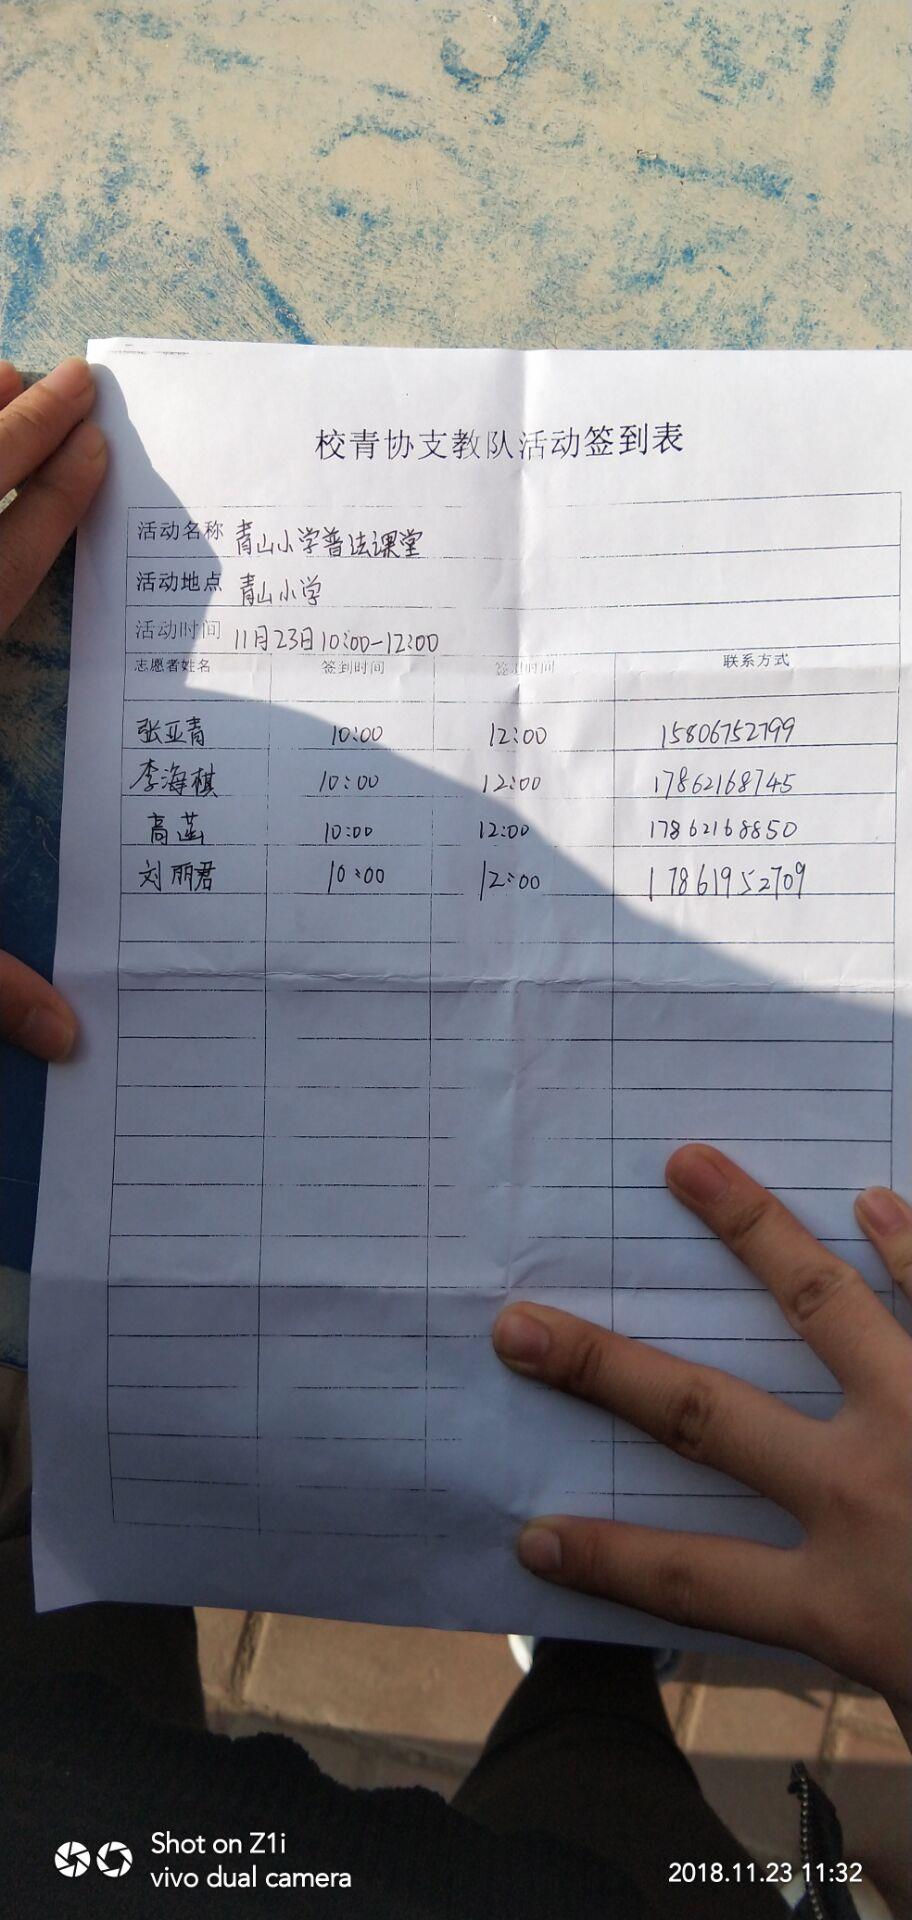 校青协支教队活动签到表
活动名称 青山小学普法课堂
活动地点 青山小学
活动时间 11月23日10:00-12:00
志愿者姓名 签到时间 签退时间 联系方式
张亚青 10:00 12:00 15806752799
李海棋 10:00 12:00 17862168745
高菡 10:00 12:00 17862168850
刘丽君 10:00 12:00 17861952709
Shot on Z1i
vivo dual camera
2018.11.23 11:32